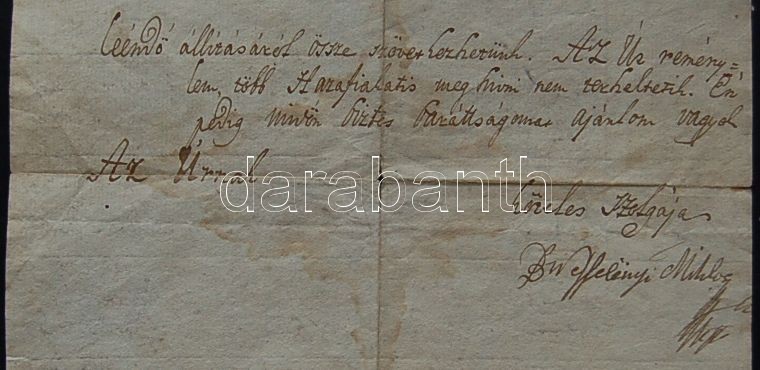 leéndő állításáról össze szövetkezhetünk. Az Úr remény=
lem, több Hazafialatis meg hivni nem terheltetik. Én
pedig midőn biztos baráttságomat ajánlom vagyok
Az Úrnak
darabanth
köteles szolgája
B Wesselényi Miklos